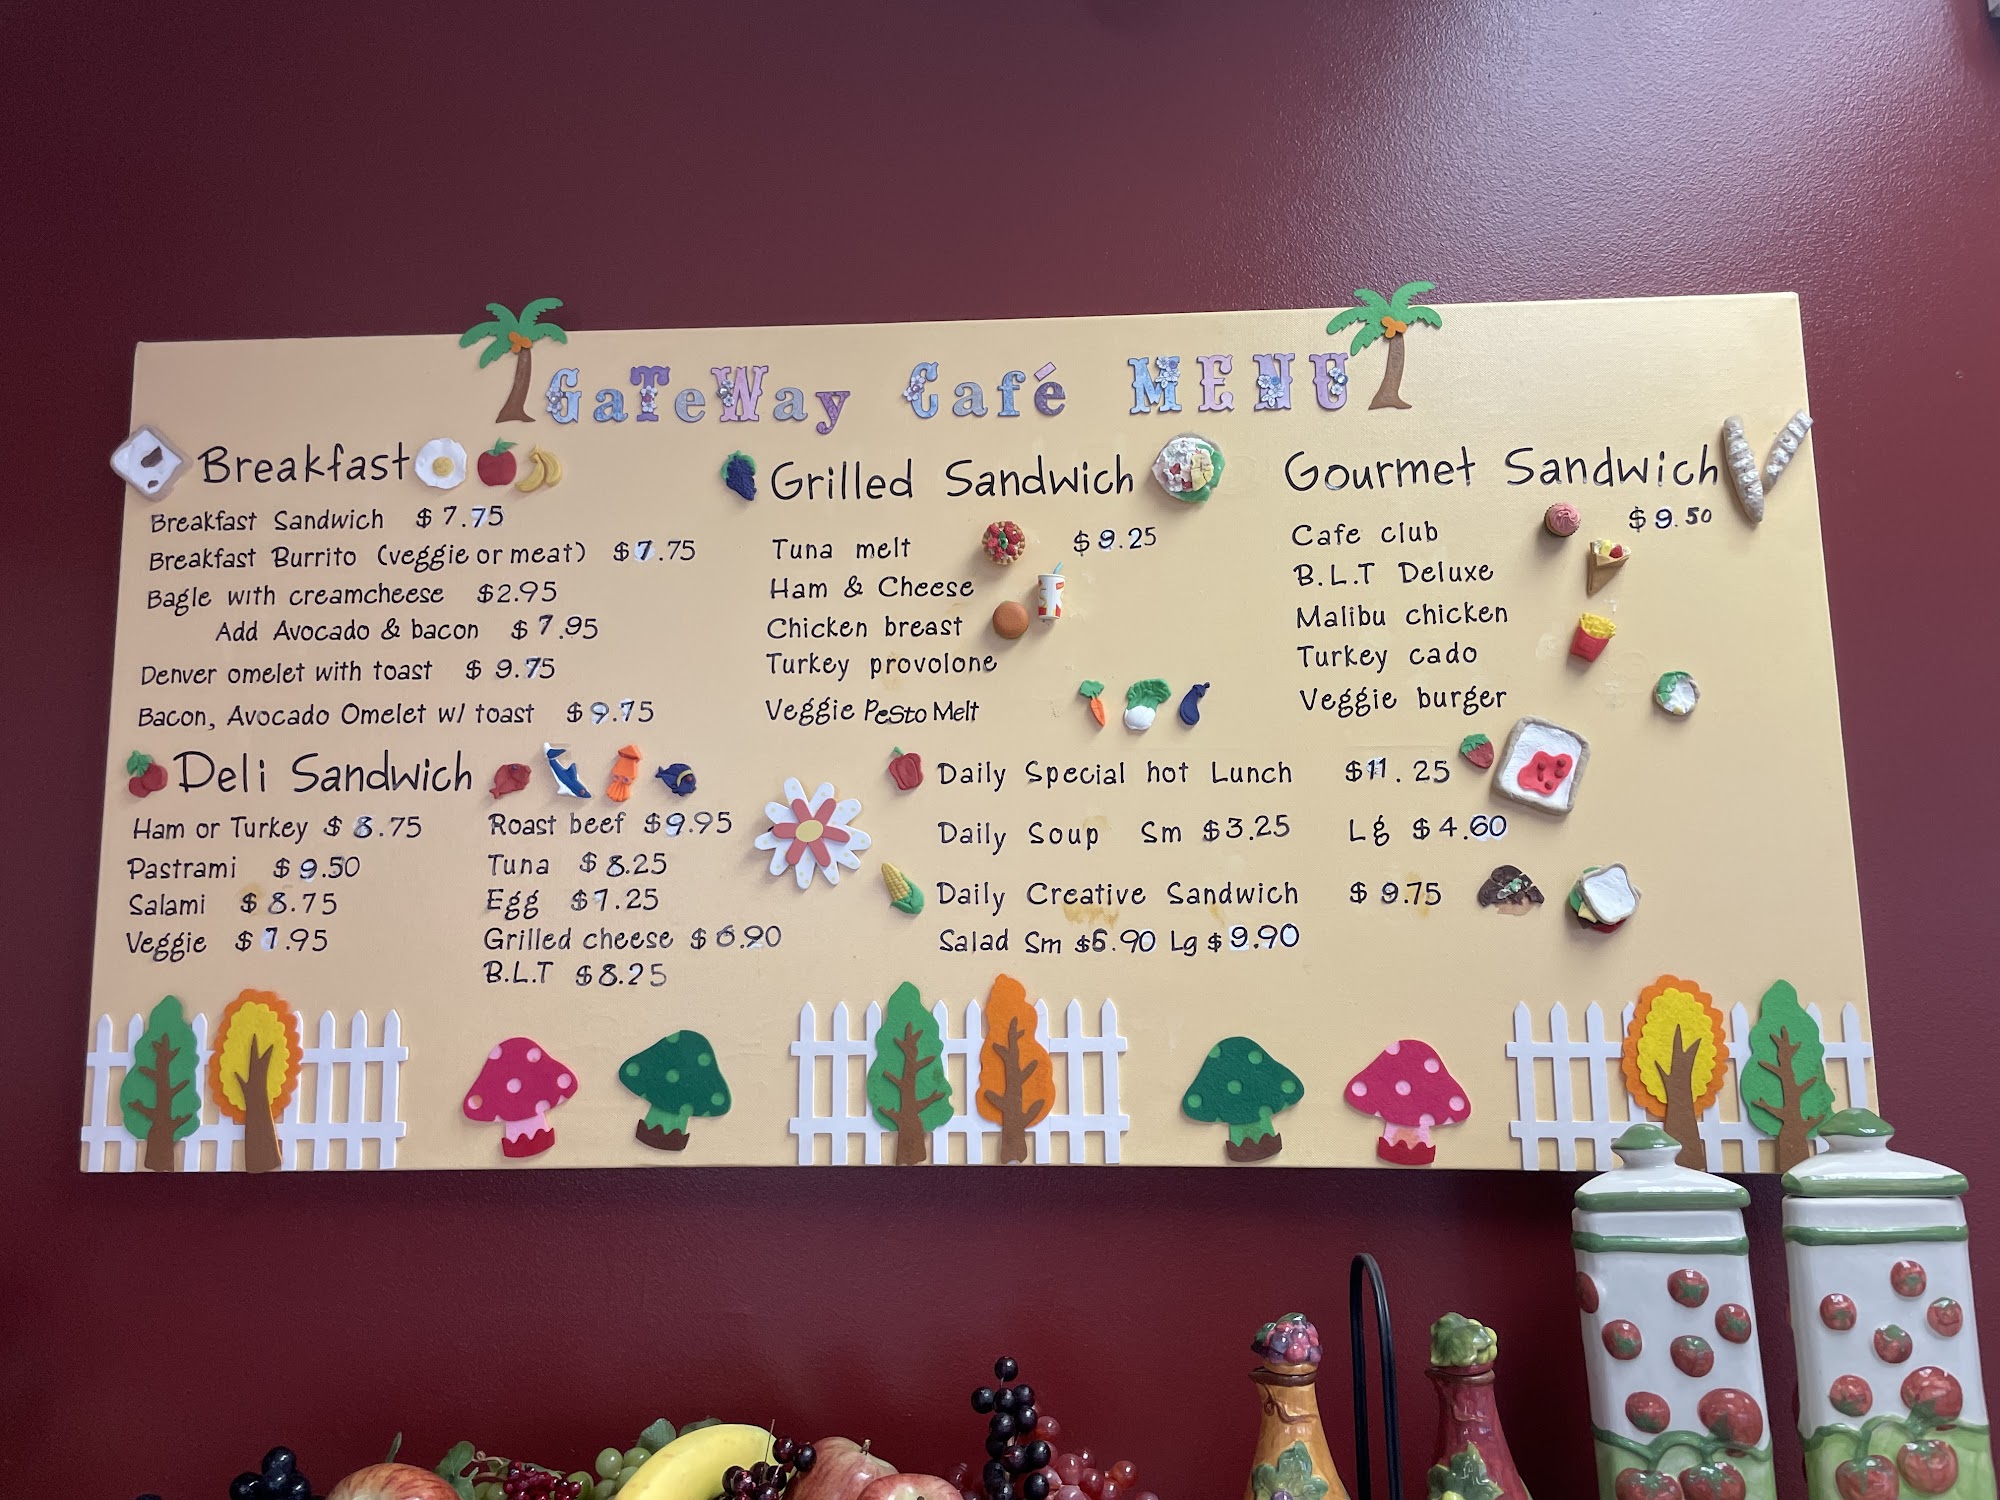 GaTeWay Café MENU
Breakfast
Breakfast Sandwich $7.75
Breakfast Burrito (veggie or meat) $7.75
Bagle with creamcheese $2.95
Add Avocado & bacon $7.95
Denver omelet with toast $9.75
Bacon, Avocado Omelet w/ toast $9.75
Deli Sandwich
Ham or Turkey $8.75
Pastrami $9.50
Salami $8.75
Veggie $7.95
Roast beef $9.95
Tuna $8.25
Egg $7.25
Grilled cheese $6.90
B.L.T $8.25
Grilled Sandwich
$9.25
Tuna melt
Ham & Cheese
Chicken breast
Turkey provolone
Veggie Pesto Melt
Gourmet Sandwich
$9.50
Cafe club
B.L.T Deluxe
Malibu chicken
Turkey cado
Veggie burger
Daily Special hot Lunch $11.25
Daily Soup Sm $3.25 Lg $4.60
Daily Creative Sandwich $9.75
Salad Sm $6.90 Lg $9.90